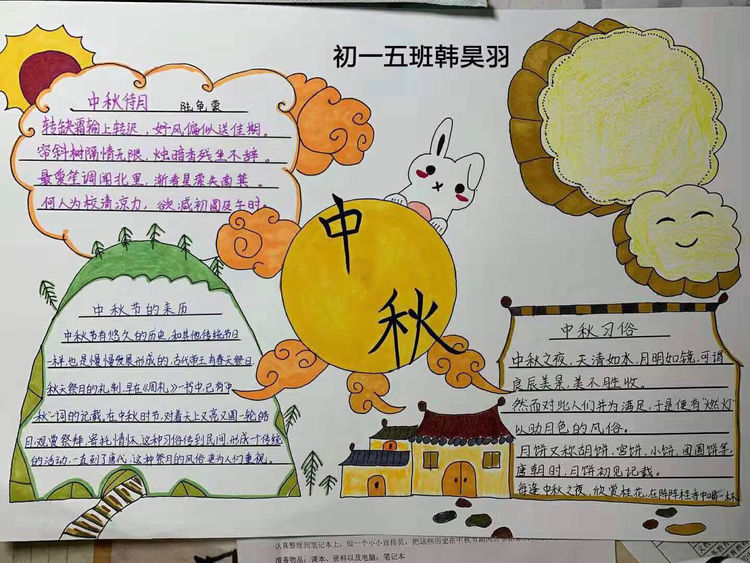 初一五班韩昊羽
中秋待月 陆龟蒙
转缺霜轮上转迟，好风偏似送佳期。
帘斜树隔情无限，烛暗香残坐不辞。
最爱笙调闻北里，渐看星荧失南箕。
何人为校清凉力，欲减初圆及午时。
中秋
中秋节的来历
中秋节有悠久的历史，和其他传统节日
一样，也是慢慢发展形成的，古代帝王有春天祭日，
秋天祭月的礼制，早在《周礼》一书中，已有"中
秋"一词的记载，在中秋时节，对着天上又亮又圆一轮皓
月，观赏祭拜，寄托情怀，这种习俗传到民间，形成一个传统
的活动，一直到了唐代，这种祭月的风俗更为人们重视。
中秋习俗
中秋之夜，天清如水，月明如镜，可谓
良辰美景，美不胜收。
然而对此人们并为满足，于是便有"燃灯"
以助月色的风俗。
月饼又称胡饼、宫饼、小饼、团圆饼等，
唐朝时，月饼初见记载。
每逢中秋之夜，欣赏桂花，在阵阵桂香中喝一杯
准备物品：课本、资料以及电脑；笔记本